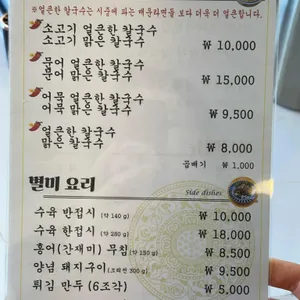 ※얼큰한 칼국수는 시중에 파는 매운라면을 보다 더욱 더 얼큰합니다.
소고기 얼큰한 칼국수
소고기 맑은 칼국수 ₩ 10,000
문어 얼큰한 칼국수
문어 맑은 칼국수 ₩ 15,000
어묵 얼큰한 칼국수
어묵 맑은 칼국수 ₩ 9,500
얼큰한 칼국수
맑은 칼국수 ₩ 8,000
곱배기 ₩ 1,000
별미 요리 Side dishes
수육 반접시 (약 140 g) ₩ 10,000
수육 한접시 (약 280 g) ₩ 18,000
홍어(간재미) 무침 (약 150 g) ₩ 8,500
양념 돼지구이 (조리전 300 g) ₩ 9,500
튀김 만두 (6조각) ₩ 5,000